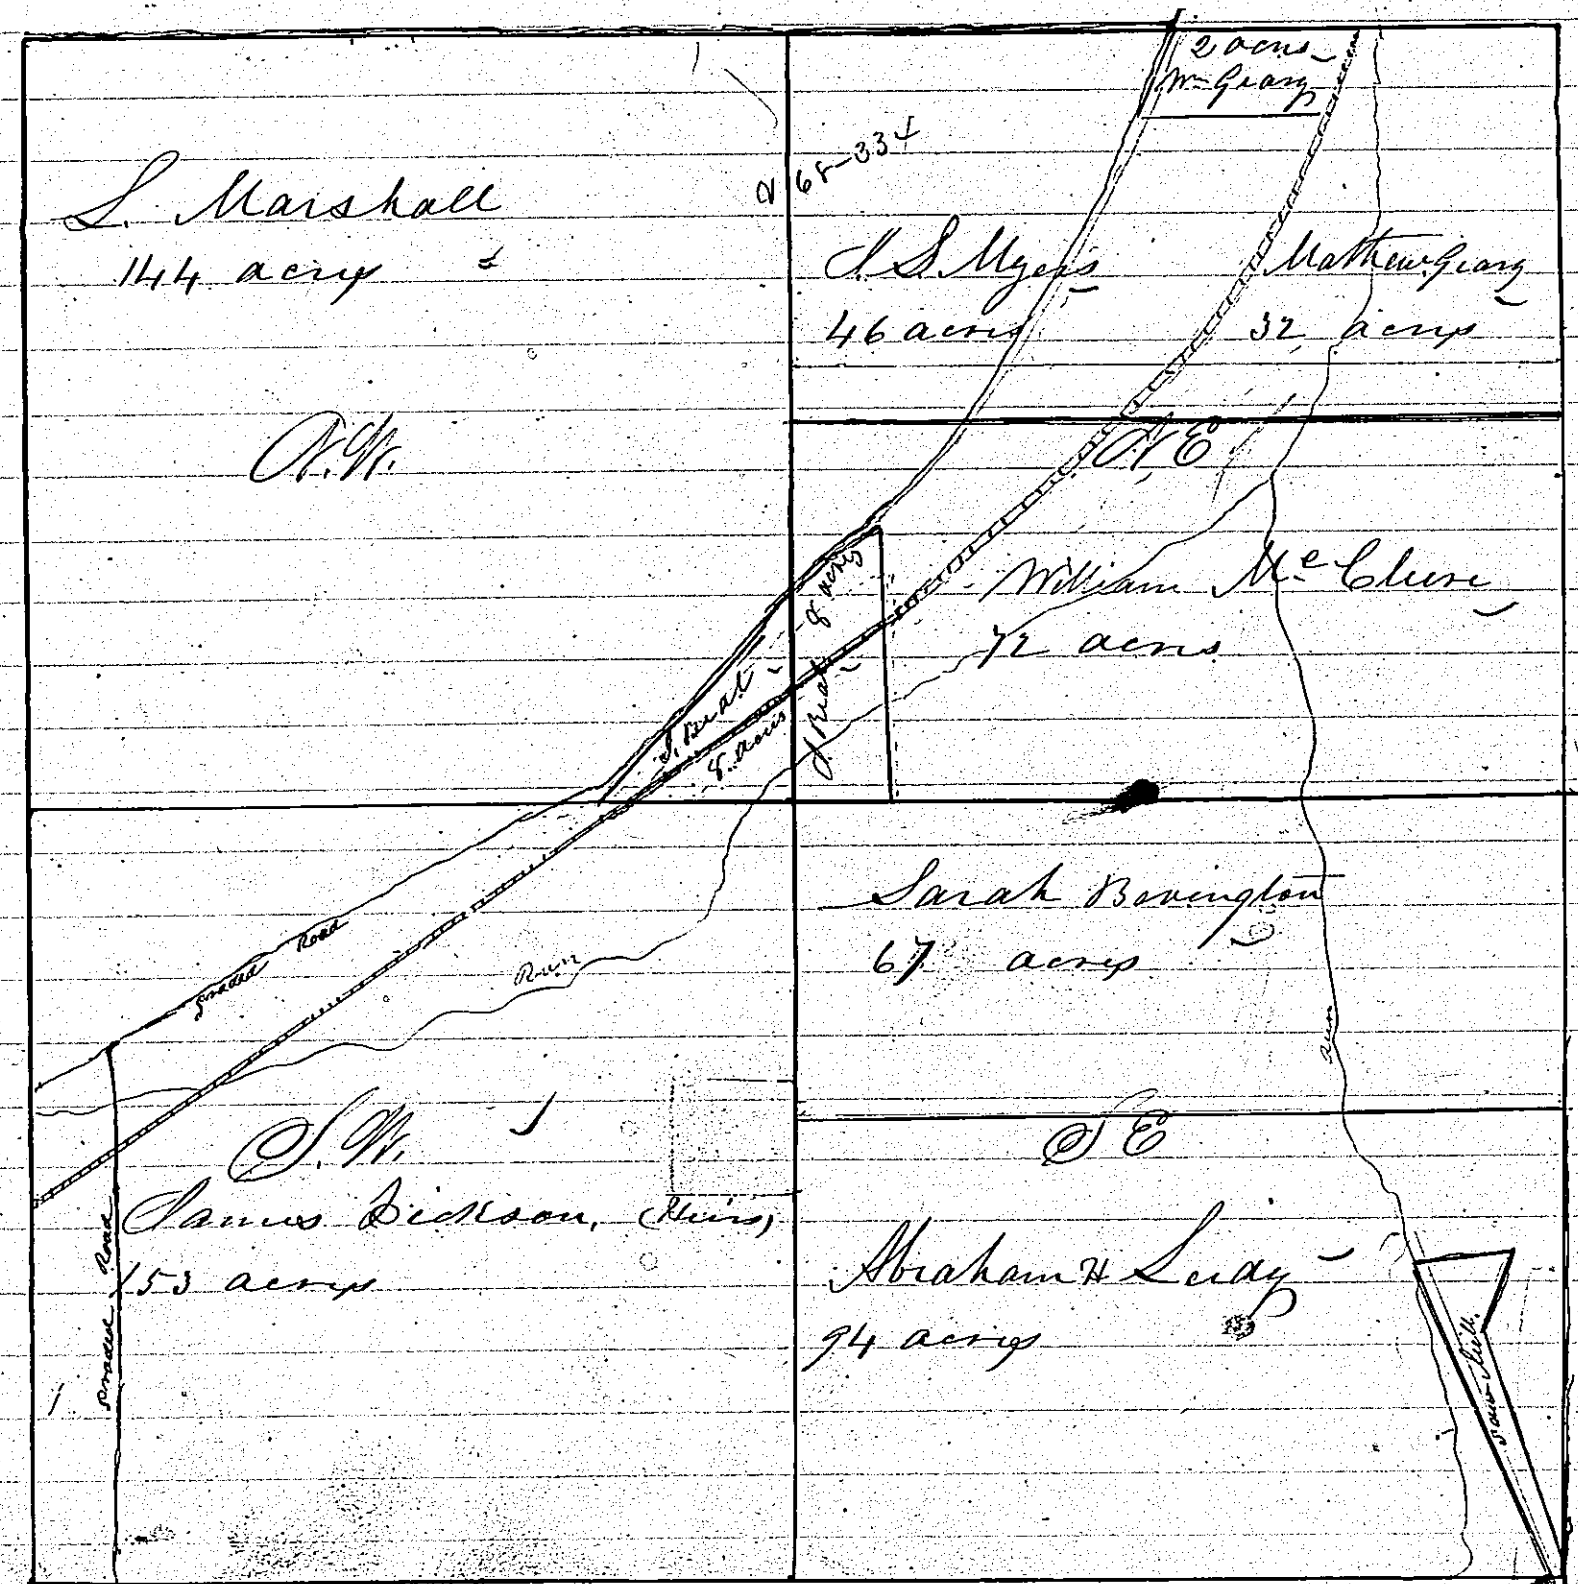 2 acres
Wm Geary
V 68-334
S. Marshall
144 acres
J. S. Myers
46 acres
Mathew Geary
32 acres
N.W.
N,E
William Mc Clure
72 acres
8 acres
S. Beal
8 acres
J Beal
Sarah Bovington
67 acres
Graded Road
Run
Run
S.W.
S E
James Dickson, (Heirs)
153 acres
Graded Road
Abraham H Leidy
94 acres
Saw Mill